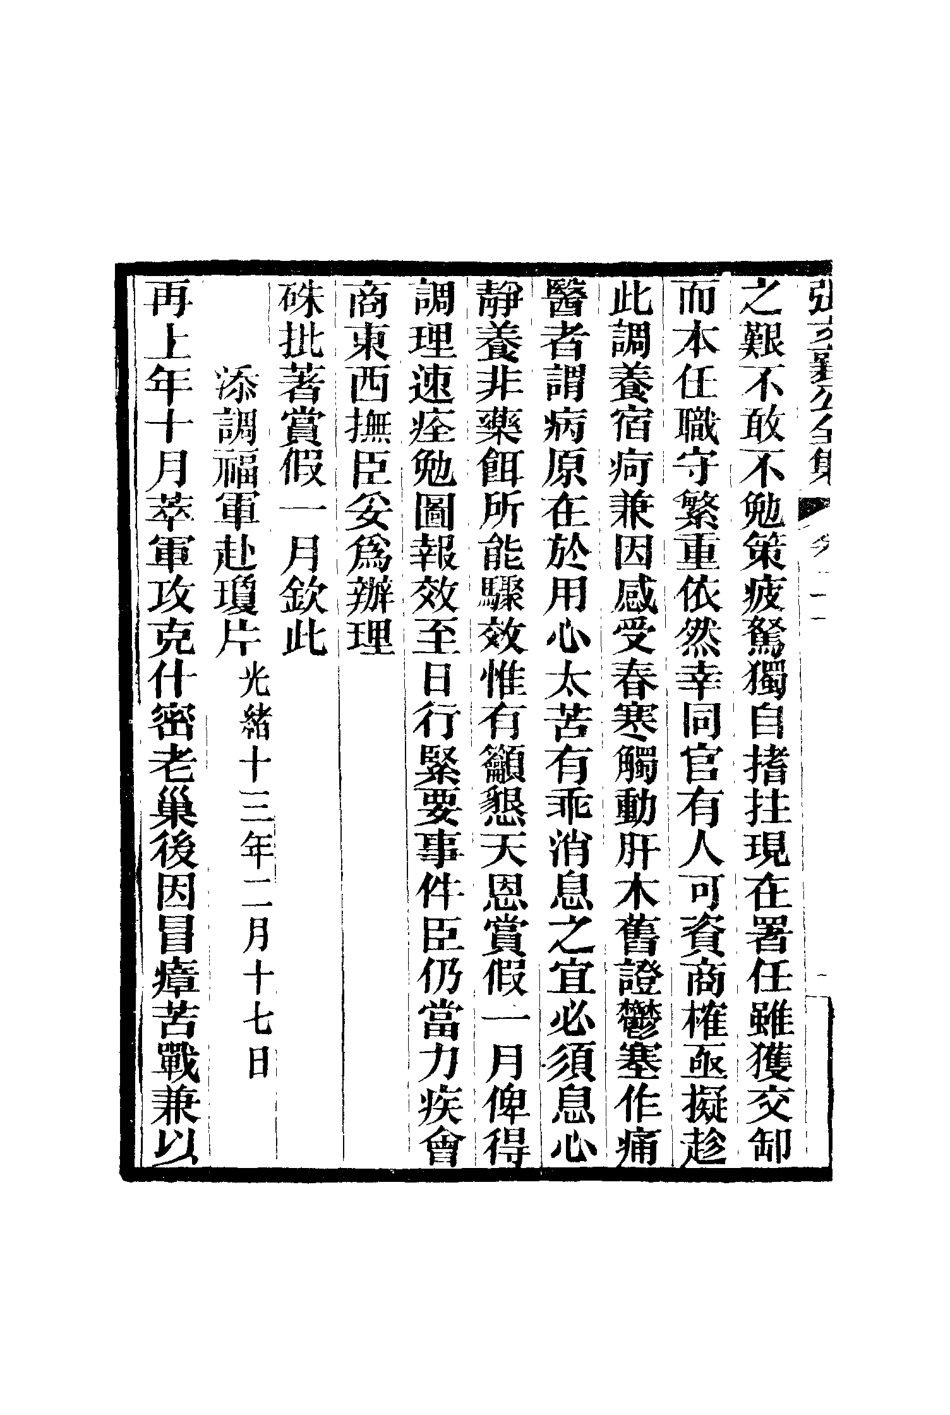 張文襄公全集
之艱不敢不勉策疲駑獨自搘拄現在署任雖獲交卸
而本任職守繁重依然幸同官有人可資商榷亟擬趁
此調養宿疴兼因感受春寒觸動肝木舊證鬱塞作痛
醫者謂病原在於用心太苦有乖消息之宜必須息心
靜養非藥餌所能驟效惟有籲懇天恩賞假一月俾得
調理速痊勉圖報效至日行緊要事件臣仍當力疾會
商東西撫臣妥爲辦理
硃批著賞假一月欽此
添調福軍赴瓊片光緒十三年二月十七日
再上年十月萃軍攻克什密老巢後因冒瘴苦戰兼以